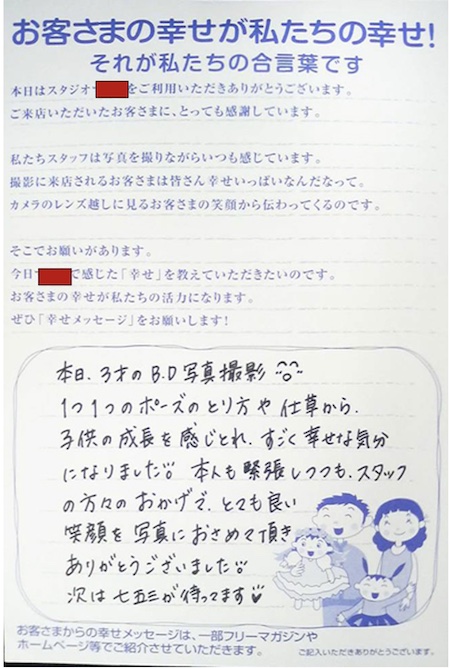 お客さまの幸せが私たちの幸せ!
それが私たちの合言葉です
本日はスタジオ をご利用いただきありがとうございます。
ご来店いただいたお客さまに、とっても感謝しています。
私たちスタッフは写真を撮りながらいつも感じています。
撮影に来店されるお客さまは皆さん幸せいっぱいなんだなって。
カメラのレンズ越しに見るお客さまの笑顔から伝わってくるのです。
そこでお願いがあります。
今日 で感じた「幸せ」を教えていただきたいのです。
お客さまの幸せが私たちの活力になります。
ぜひ「幸せメッセージ」をお願いします!
本日、3才のB.D写真撮影
1つ1つのポーズのとり方や仕草から、
子供の成長を感じとれ、すごく幸せな気分
になりました。 本人も緊張しつつも、スタッフ
の方々のおかげで、とても良い
笑顔を写真におさめて頂き
ありがとうございました。
次は七五三が待ってます
お客さまからの幸せメッセージは、一部フリーマガジンや
ホームページ等でご紹介させていただきます。
ご記入いただきありがとうございます。